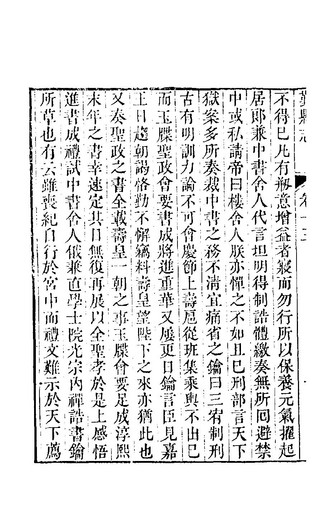 不得已凡有刱意增益者寢而勿行所以保養元氣擢起
居郎兼中書舍人代言坦明得制誥體繳奏無所回避禁
中或私請帝曰樓舍人朕亦憚之不如且已刑部言天下
獄案多所奏裁中書之務不清宜痛省之鑰曰三宥制刑
古有明訓力論不可會慶節上壽扈從班集乘輿不出已
而玉牒聖政會要書成將進重華又屢更日鑰言臣見嘉
王日趨朝謁恪勤不懈竊料壽皇望陛下之來亦猶此也
又奏聖政之書全載壽皇一朝之事玉牒會要足成淳熙
末年之書幸速定其日無復再展以全聖孝於是上感悟
進書成禮試中書舍人俄兼直學士院光宗內禪詔書鑰
所草也有云雖喪紀自行於宮中而禮文難示於天下薦